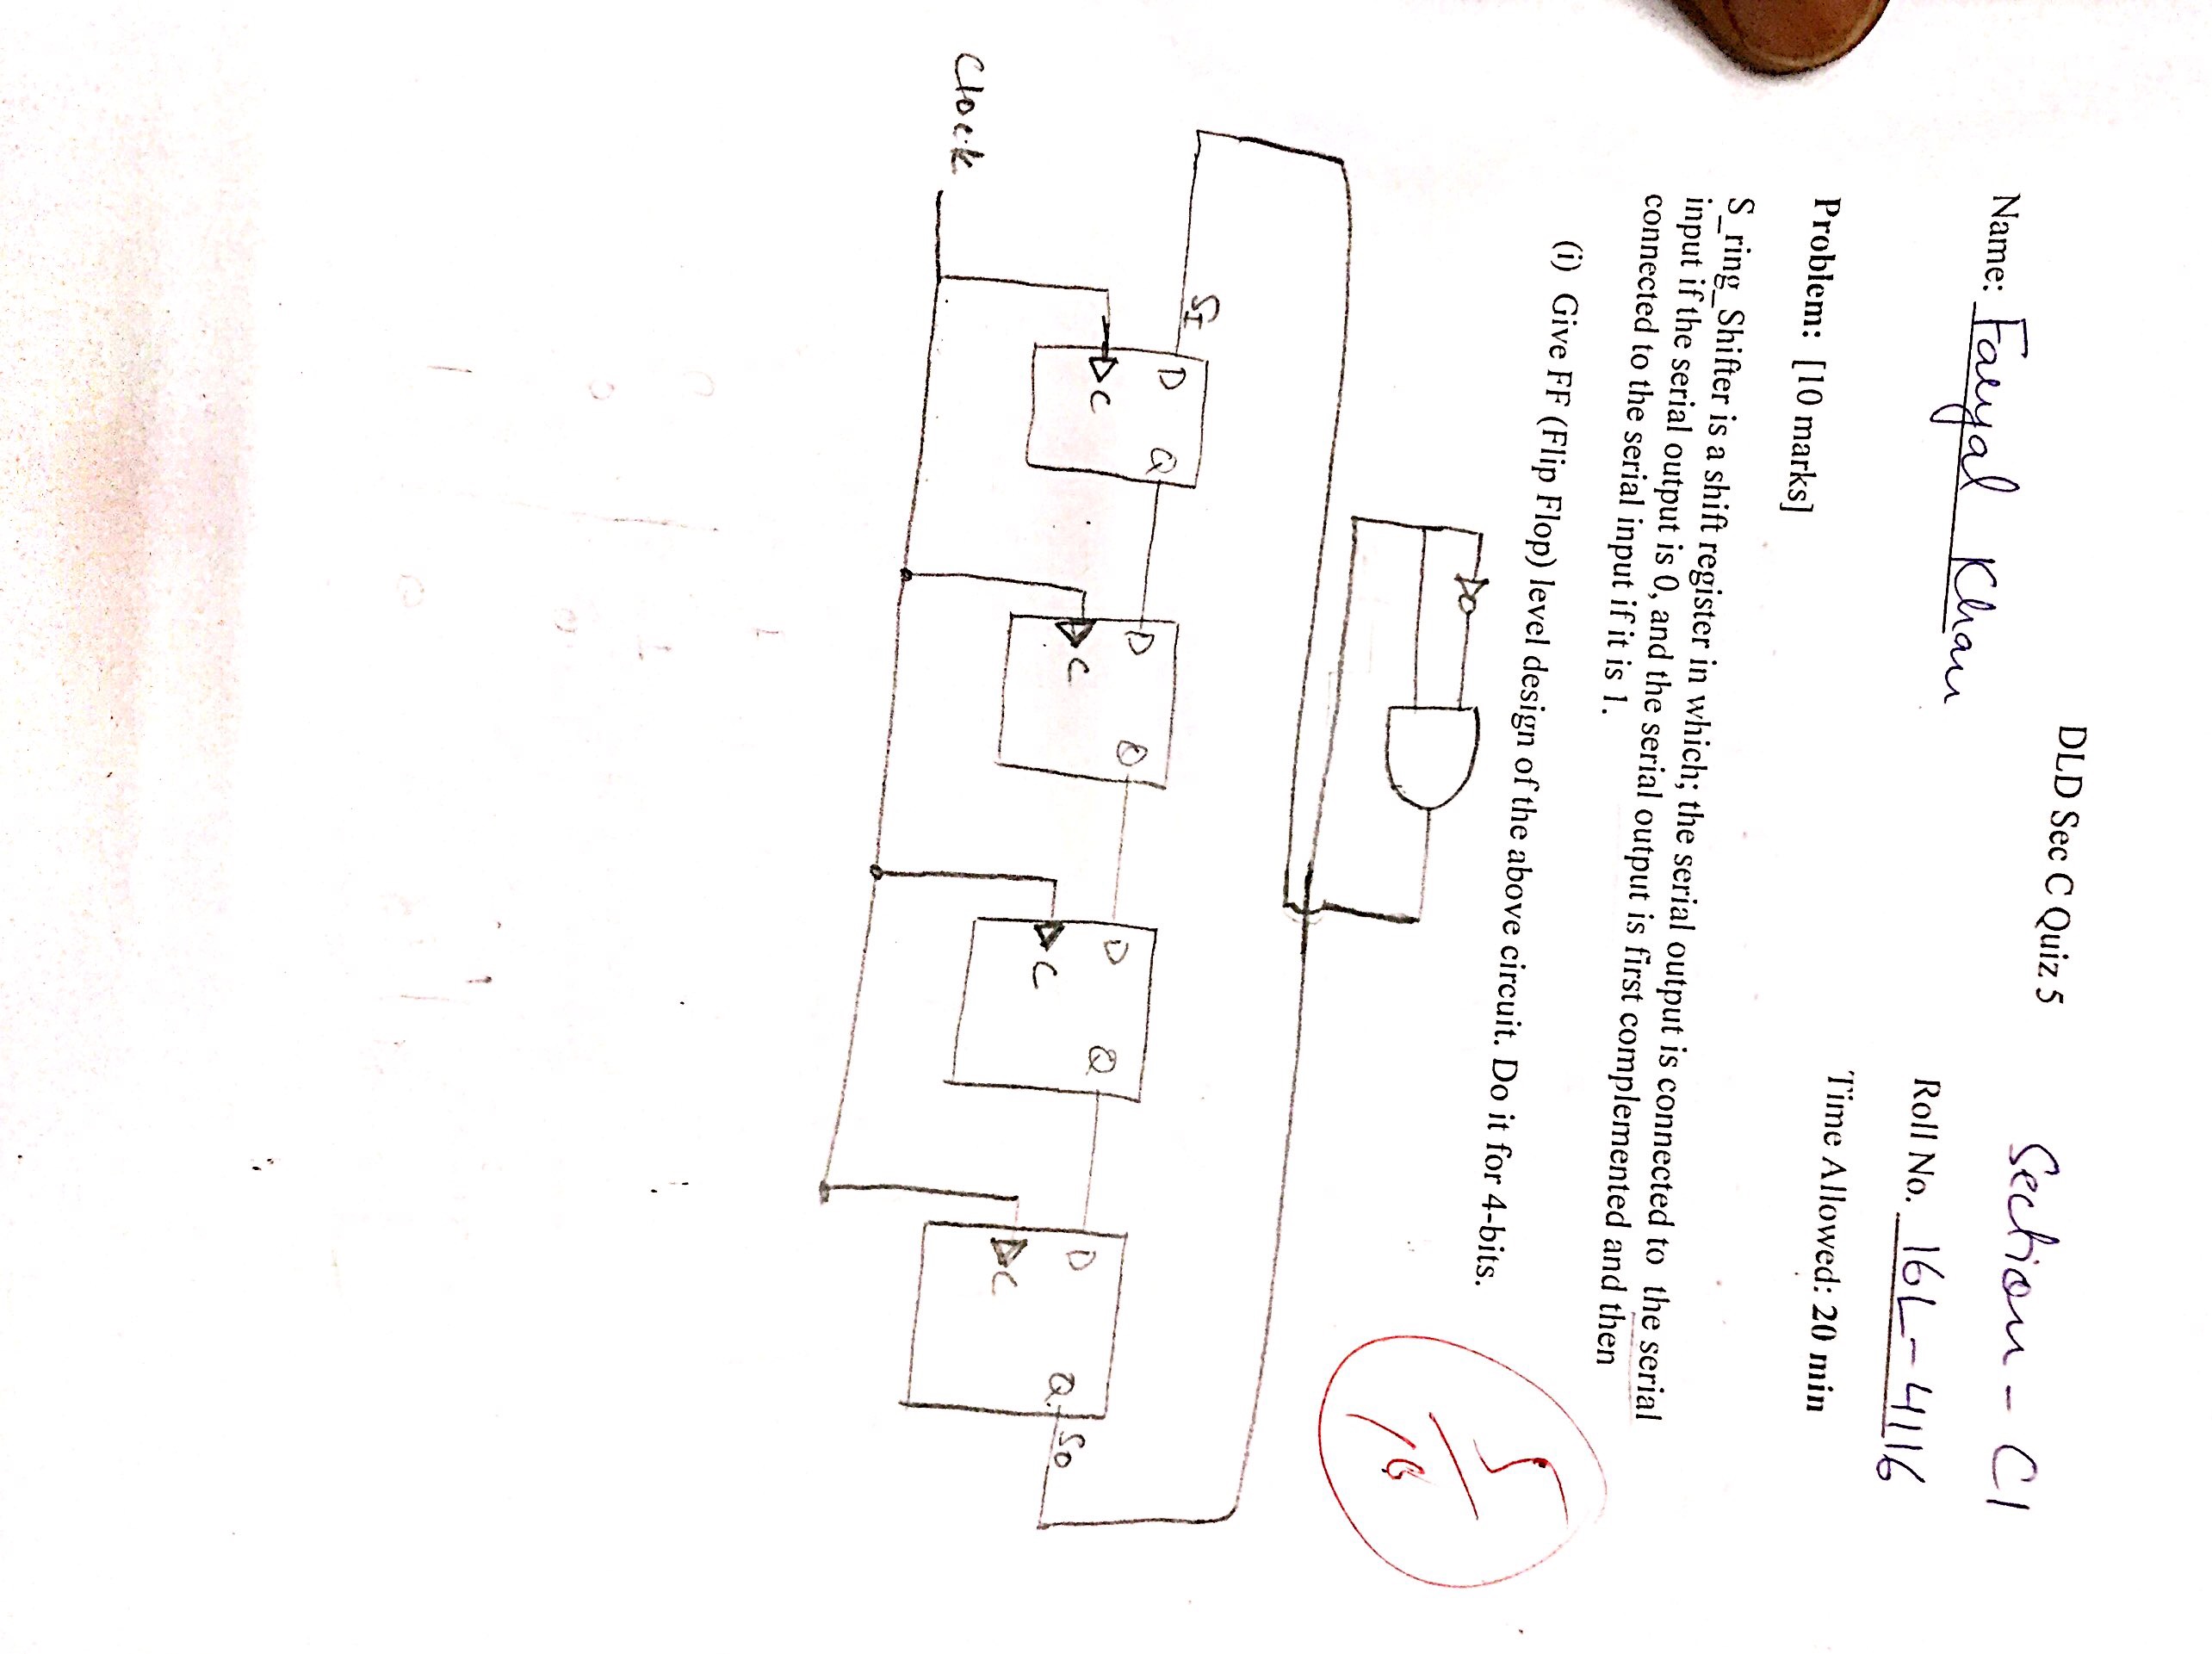 DLD Sec C Quiz 5 Section - C1
Name: Faryal Khan Roll No. 16L-4116
Problem: [10 marks] Time Allowed: 20 min
S_ring_Shifter is a shift register in which; the serial output is connected to the serial
input if the serial output is 0, and the serial output is first complemented and then
connected to the serial input if it is 1.
(i) Give FF (Flip Flop) level design of the above circuit. Do it for 4-bits.
5/10
SI
D Q D Q D Q D Q SO
C C C C
Clock